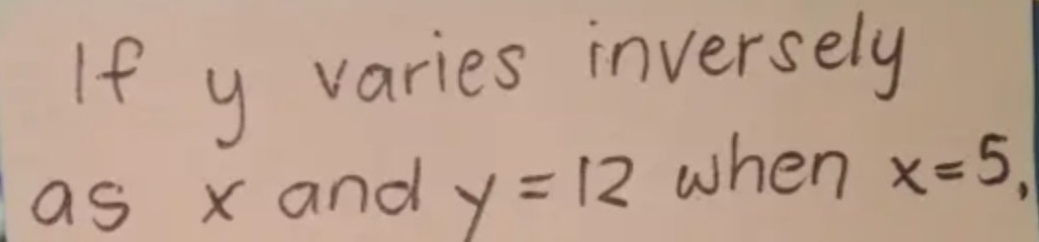 If y varies inversely
as x and y = 12 when x = 5,